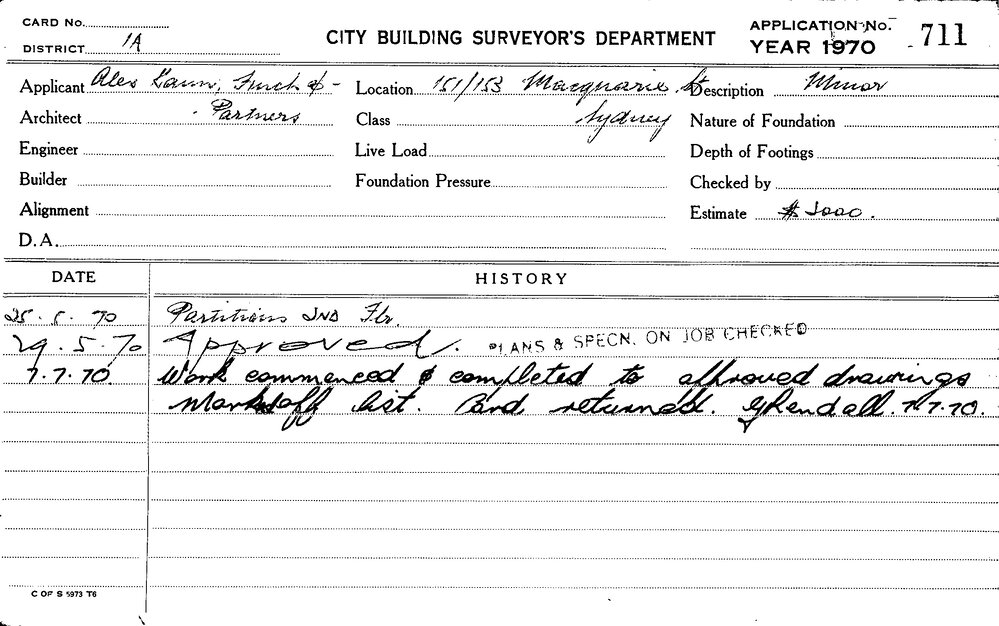 CARD No.
DISTRICT 1A
CITY BUILDING SURVEYOR'S DEPARTMENT
APPLICATION No. 711
YEAR 1970
Applicant Alex & -
Partners
Location 151/153 Macquarie St
Sydney
Description Minor
Architect
Class
Nature of Foundation
Engineer
Live Load
Depth of Footings
Builder
Foundation Pressure
Checked by
Alignment
Estimate $ 2000.
D.A.
DATE
HISTORY
25.5.70 Partitions 2ND Flr.
29.5.70 Approved. PLANS & SPECN. ON JOB CHECKED
7.7.70. Work commenced & completed to approved drawings
Mark off list. Card returned. GKendall. 7.7.70.
C OF S 5973 T6